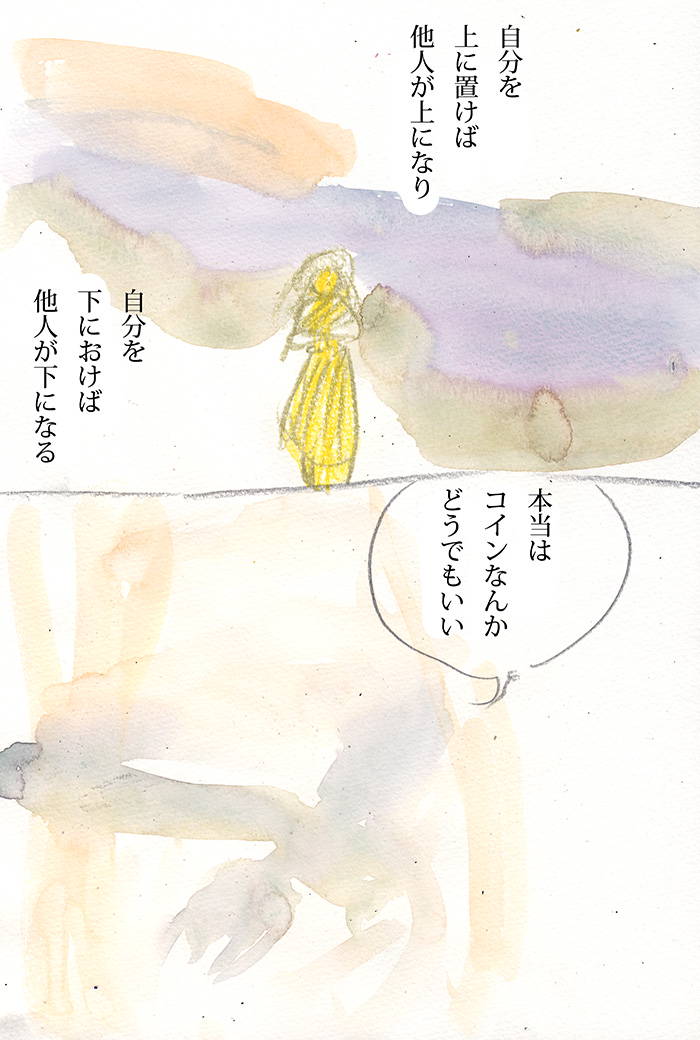 自分を
上に置けば
他人が上になり
自分を
下におけば
他人が下になる
本当は
コインなんか
どうでもいい